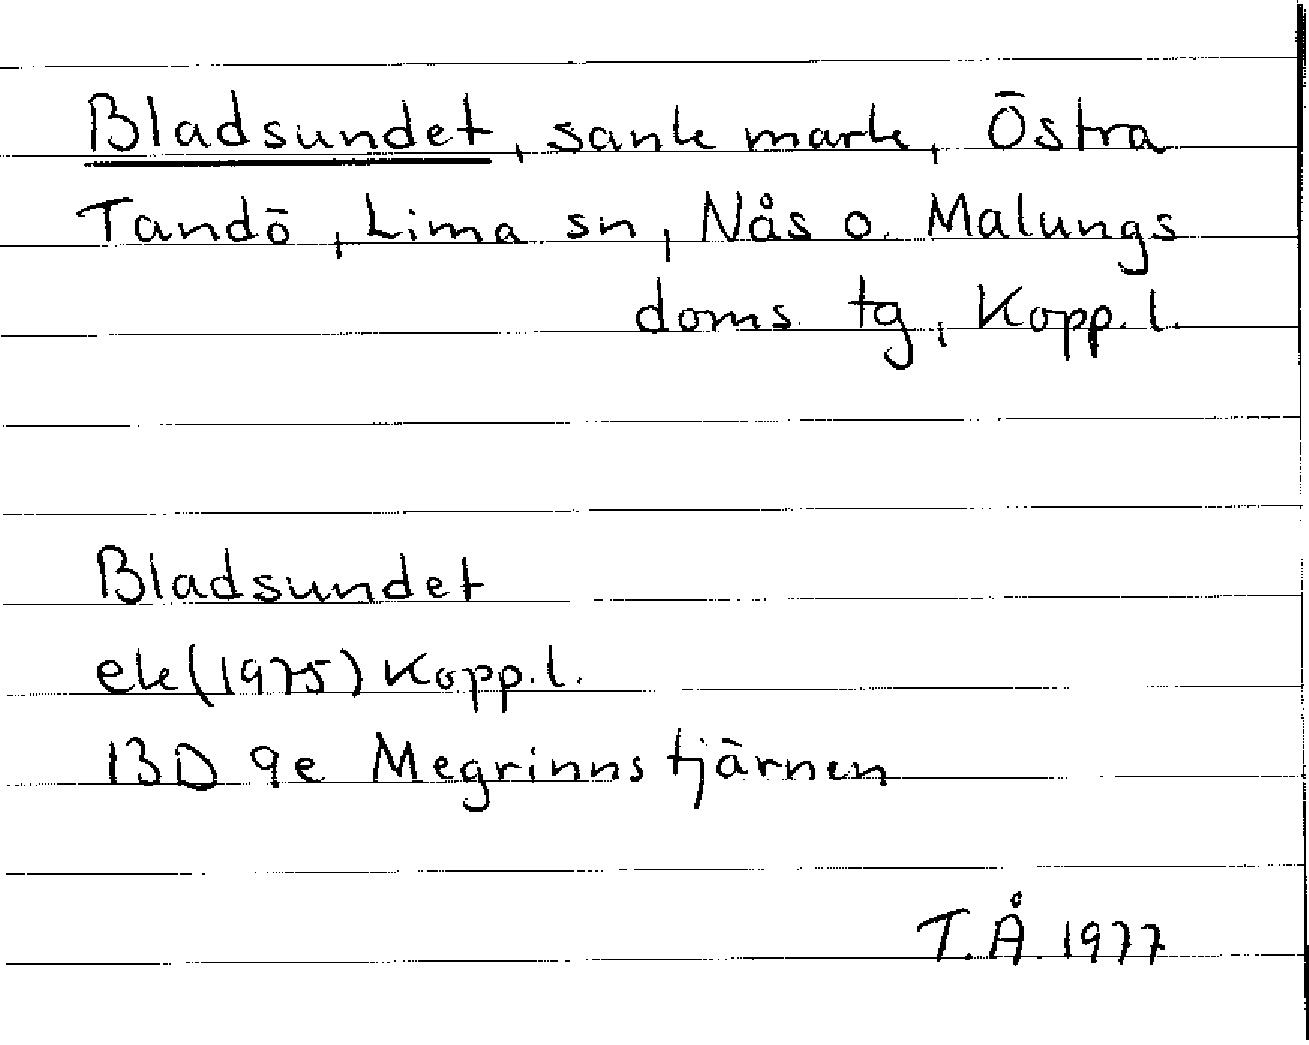 Bladsundet, sank mark, Östra
Tandö, Lima sn, Nås o. Malungs
doms tg, Kopp. l.
Bladsundet
ek (1975) Kopp. l.
13D 9e Megrinnstjärnen
T.Å. 1977